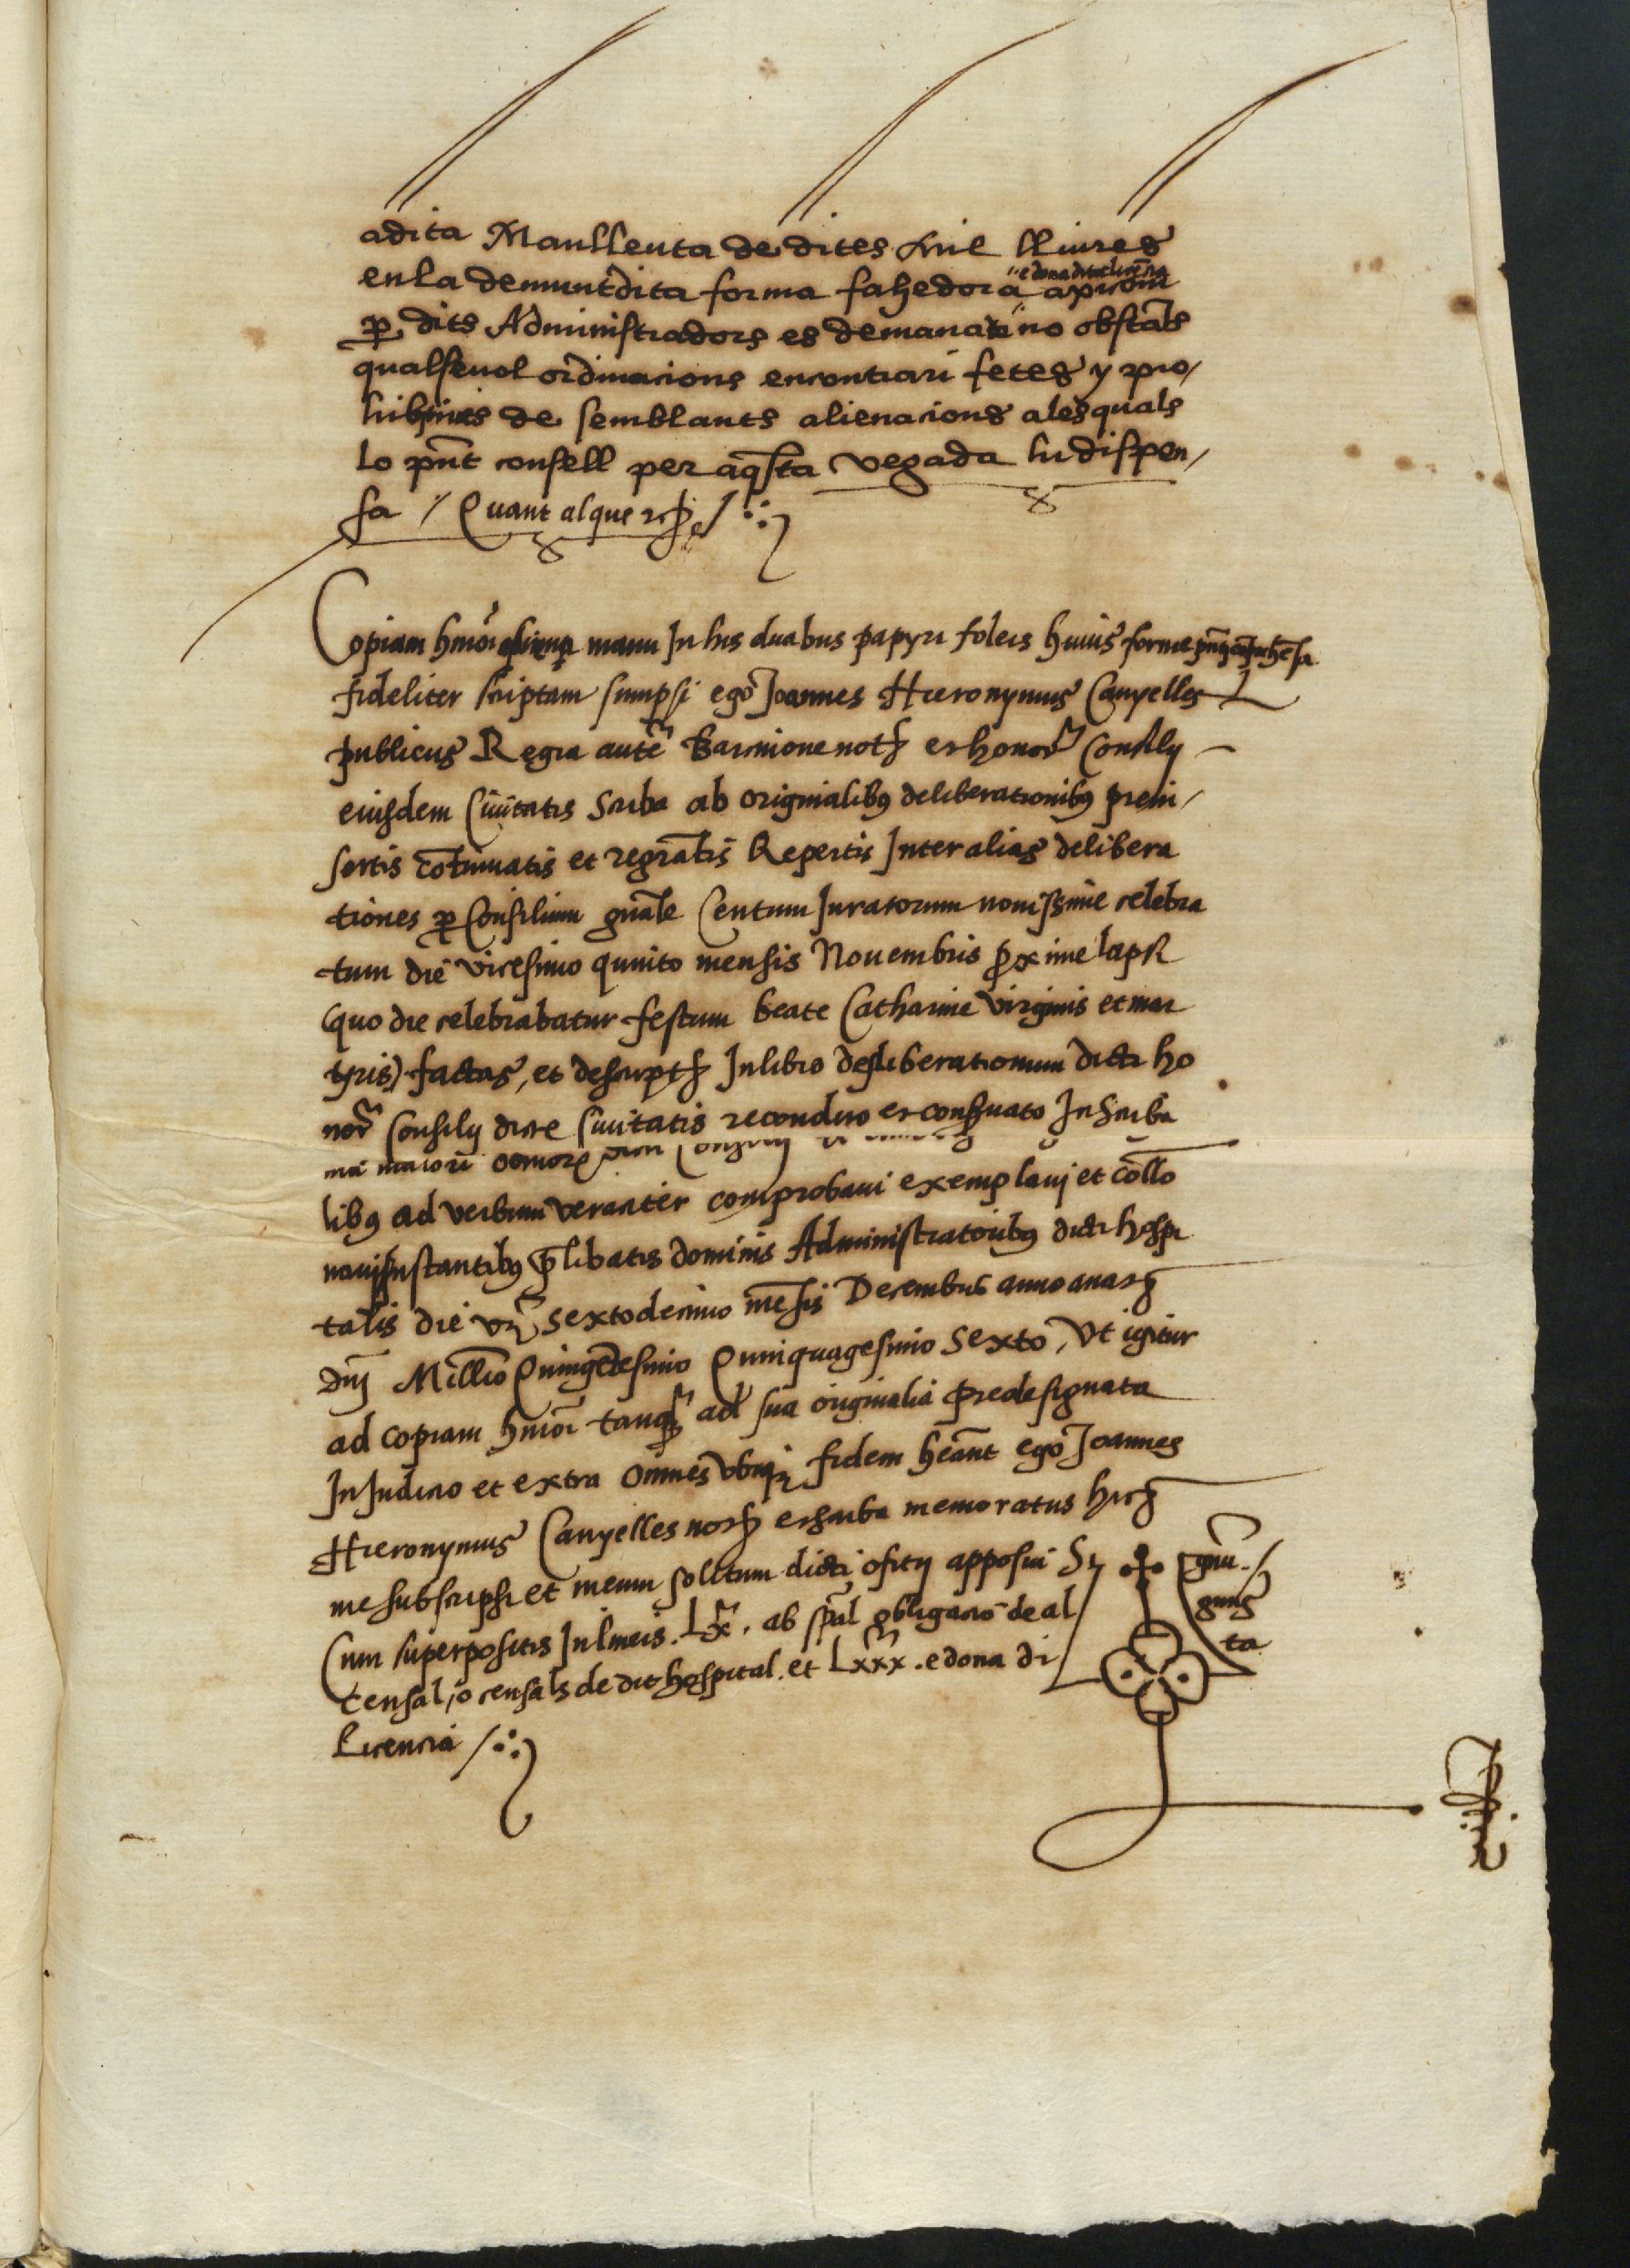 adita Manlleuta de dites Mil lliures
en la demuntdita forma fahedora e dona dita licẽcia axi com
per dits Administradors es demanat no obstãts
qualseuol ordinacions encontrari fetes y pro/
hibitiues de semblants alienacions a les quals
Lo pñt consell per aq̃sta vegada hi dispen/
sa / Quant al que
Copiam hmõi manu In his duabus papyri foleis huius forme
fideliter scriptam sumpsi ego Joannes Hieronymus Canyelles
publicus Regia aucte Barcinone not et honor Consilij
eiusdem Ciuitatis Scriba ab originalibus deliberationibus prein/
sertis cõtinuatis et regrãtis Repertis Inter alias delibera
tiones per Consilium gnãle Centum Juratorum nouissime celebra
tum die vicesimo quinto mensis Nouembris proxime lapsi
(quo die celebrabatur festum beate Catharine virginis et mar
tyris) factas, et descript In libro deliberationum dicti ho
nor Consilij dicte Ciuitatis recondito et conseruato In Scriba
nia maiori domorum dicti Consilij
libus ad verbum veraciter comprobaui exemplauj et collo
nauj Instantibus prelibatis dominis Administratoribus dicti hospi
talis die vero sextodecimo mẽsis Decembris anno a nat
dnj Millõ Quingẽtesimo Quinquagesimo Sexto, Vt igitur
ad copiam hmõi tanq̃ ad sua originalia predesignata
In Judicio et extra Omnes vbiq fidem heãnt ego Joannes
Hieronymus Canyelles not et scriba memoratus hic
me subscripsi et meum solitum dicti oficij apposui Si gnũ./
Cum superpositis In lineis. Lx. ab spãl obligacio de al gũs
Censal, o censals de dit hospital. et Lxxx. e dona di ta
Licencia /